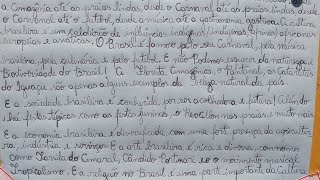 a Amazônia até as praias lindas, desde o Carnaval até as praias lindas, desde
o Carnaval até o futebol, desde a música até a gastronomia, a cultura
brasileira é um caldeirão de influências indígenas, africanas
europeias e asiáticas. O Brasil é famoso pelo seu Carnaval, pela música
brasileira, pela culinária e pelo futebol. E não Podemos esquecer da natureza e
Biodiversidade do Brasil! A Floresta Amazônica, o Pantanal, as Cataratas
do Iguaçu são apenas alguns exemplos da beleza natural do país
E a sociedade brasileira é conhecida por ser acolhedora e festiva! Além
há festas típicas como as festas juninas, o Réveillon nas praias e muito mais
E a economia brasileira é diversificada com uma forte presença da agricultu
ra, indústria e serviços. E a arte brasileira é rica e diversa, com nomes
como Tarsila do Amaral, Cândido Portinari e o movimento musical
Tropicalismo. E a religião no Brasil é uma parte importante da Cultura